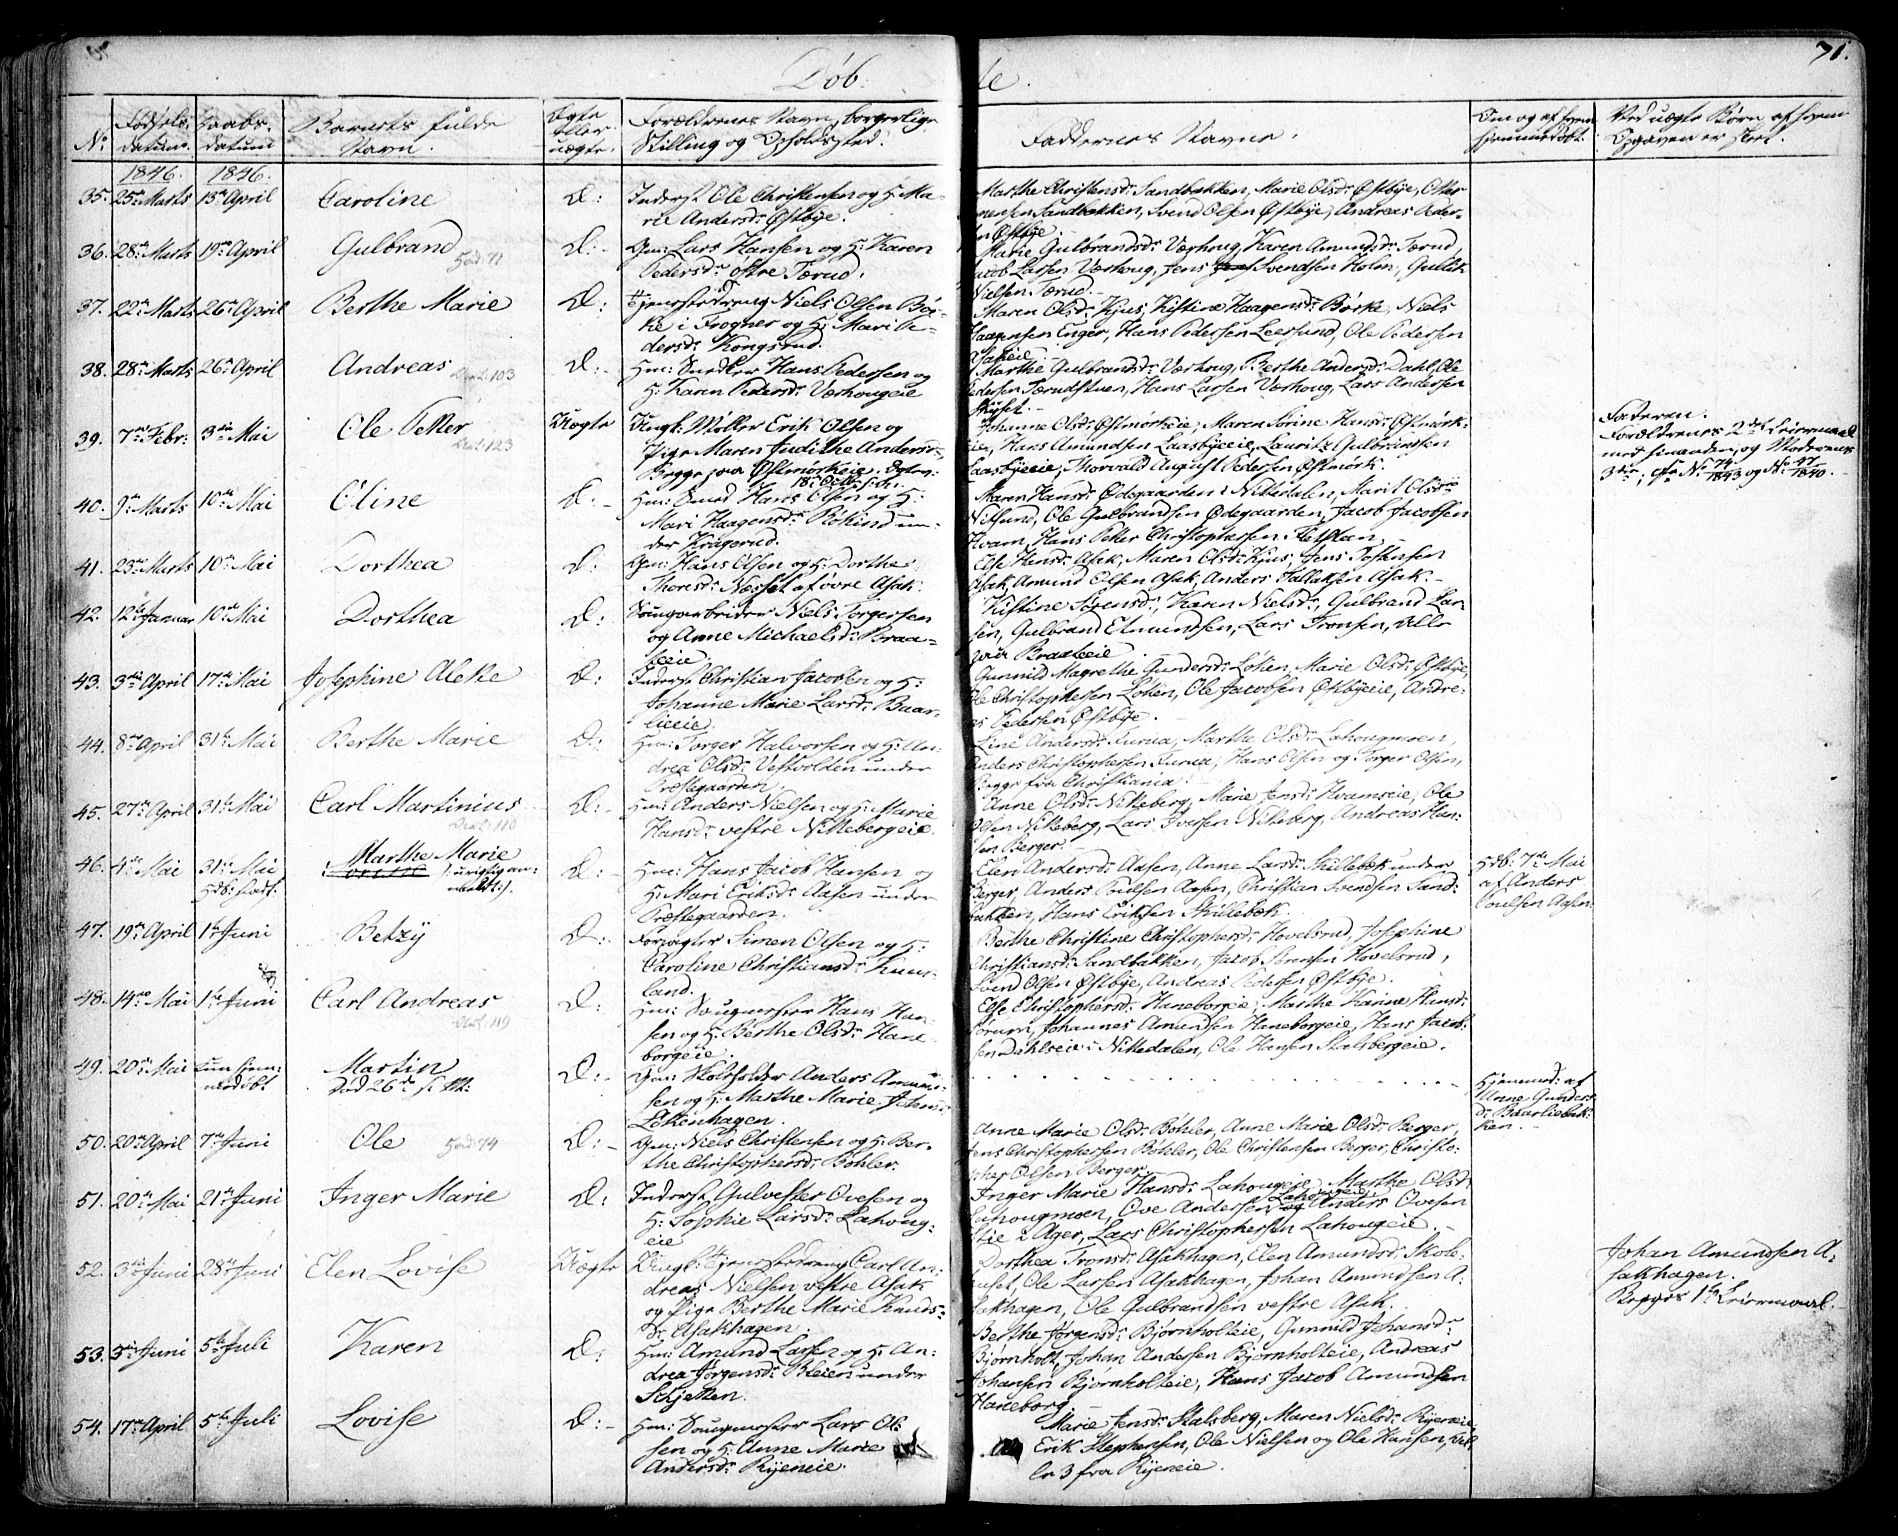 Døbte.
71.
No
Fødsels-
datum.
Daabs-
datum
Barnets fulde
Navn.
Ægte
eller
uægte.
Forældrenes Navn, borgerlige
Stilling og Opholdssted.
Faddernes Navne.
Om og af hvem
hjemmedøbt.
Ved uægte Børn af hvem
Opgaven er skeet.
1846. 1846.
35. 25de Marts 13de April Caroline Æ:
Inderst Ole Christensen og H: Ma-
rie Andersdr Østbye.
Marthe Christensdr Sandbakken, Marie Olsdr Østbye,
Sandbakken, Svend Olsen Østbye, Andreas Peder-
sen Østbye.
36. 28de Marts 19de April Gulbrand Æ:
Gm: Lars Hansen og H: Karen
Pedersdr østre Tærud.
Marie Gulbrandsdr Værhoug, Karen Amundsdr Tærud,
Jacob Larsen Værhoug, Jens Svendsen Holm, Gullik
Nielsen Tærud.
37. 22de Marts 26de April Berthe Marie Æ:
Tjenestedreng Niels Olsen Bør-
ke i Frogner og H: Mari Pe-
dersdr Kongsrud.
Maren Olsdr Kjus, Kistine Haagensdr Børke, Niels
Haagensen Enger, Hans Pedersen Leersund, Ole Pedersen
Asakeie.
38. 28de Marts 26de April Andreas Æ:
Hm: Snedker Hans Pedersen og
H: Karen Pedersdr Værhougeie
Marthe Gulbrandsdr Værhoug, Berthe Andersdr Dahl, Ole
Pedersen Tærudstuen, Hans Larsen Værhoug, Lars Andersen
39. 7de Febr: 3die Mai Ole Petter Uægte
Ungk: Møller Erik Olsen og
Pige Maren Judithe Andersdr
Begge paa Østmørkeie.
Johanne Olsdr Østmørkeie, Maren Sorine Hansdr Østmørk-
eie, Hans Amundsen Laasbyeie, Lauritz Gulbransen
Laasbyeie, Thorvald August Pedersen Østmørk.
Faderen.
Forældrenes 2det Leiermaal
med hinanden, og Moderens
3die, cfr No 74/1843 og No 47/1840.
40. 9de Marts 10de Mai Oline Æ:
Hm: Smed Hans Olsen og H:
Mari Haagensdr Røkind un-
der Kragerud.
Maren Hansdr Ødegaarden i Nittedalen, Marit Olsdr
Nitsund, Ole Gulbrandsen Ødegaarden, Jacob Jacobsen
Hvam, Hans Peter Christophersen
41. 23de Marts 10de Mai Dorthea Æ:
Gm: Hans Olsen og H: Dorthe
Thoresdr Næsset af øvre Asak.
Else Hansdr Asak, Maren Olsdr Kjus, Jens Tostensen
Asak, Amund Olsen Asak, Anders Hallaksen Asak.
42. 12te Januar 10de Mai Dorthea Æ:
Sougarbeider Niels Torgersen
og Anne Michaelsdr Braa-
teeie.
Kistine Sørensdr, Karen Nielsdr, Gulbrand Lar-
sen, Gulbrand Elmundsen, Lars Tronsen, alle
paa Braateeie.
43. 3die April 17de Mai Josephine Aleke Æ:
Inderst Christian Jacobsen og H:
Johanne Marie Larsdr Baar-
lieeie.
Gunnild Magrethe Gundersdr Løken, Marie Olsdr Østbye,
Ole Christophersen Løken, Ole Jacobsen Østbyeeie, Andre-
as Pedersen Østbye.
44. 8de April 31te Mai Berthe Marie Æ:
Hm: Torger Halvorsen og H: An-
drea Olsdr Vestvolden under
Præstegaarden.
Line Andersdr Furua, Marthe Olsdr Lahougmoen,
Anders Christophersen Furua, Hans Olsen og Torger Olsen,
Begge fra Christiania.
45. 27de April 31te Mai Carl Martinius Æ:
Hm: Anders Nielsen og H: Marie
Hansdr vestre Nitteberg eie.
Anne Olsdr Nitteberg, Marie Jensdr Hvamseie, Ole
Olsen Nitteberg, Lars Iversen Nitteberg, Andreas Han-
sen Berger.
46. 4de Mai 31te Mai Marthe Marie Æ:
Hdb: Præst.
(: urigtig an-
meldt :)
Hm: Hans Jacob Hansen og
H: Mari Eriksdr Aasen under
Præstegaarden.
Elen Andersdr Aasen, Anne Larsdr Skillebæk under
Berger, Anders Poulsen Aasen, Christian Svendsen Sand-
bakken, Hans Eriksen Skillebæk.
Hdb: 7de Mai
af Anders
Poulsen Aasen
47. 19de April 1ste Juni Betzy Æ:
Forpagter Simen Olsen og H:
Caroline Christiansdr
land.
Berthe Christine Christophersdr Hovelsrud, Josephine
Christiansdr Sandbakken, Jacob Sørensen Hovelsrud,
Svend Olsen Østbye, Andreas Pedersen Østbye.
48. 14de Mai 1ste Juni Carl Andreas Æ:
Hm: Sougmester Hans Han-
sen og H: Berthe Olsdr Hane-
borgeie.
Else Christophersdr Haneborgeie, Marthe Karine Hansdr
Sørum, Johannes Amundsen Haneborgeie, Hans Jacob-
sen Dahlseie i Nittedalen, Ole Hansen Stalsbergeie.
49. 20de Mai Kun hjem-
medøbt Martin Æ:
Død 26de s. M:
Gm: Skoleholder Anders Amund-
sen og H: Marthe Marie Johnsdr
Løkenhagen.
Hjemmed: af
Anne Gunders-
dr Baarliebak-
ken.
50. 20de April 7de Juni Ole Æ:
Gm: Niels Christensen og H: Ber-
the Christophersdr Bøhler.
Anne Marie Olsdr Bøhler, Anne Marie Olsdr Berger,
Jens Christophersen Bøhler, Ole Christensen Berger, Christo-
pher Olsen Berger.
51. 20de Mai 21de Juni Inger Marie Æ:
Inderst Gulvester Ovesen og
H: Sophie Larsdr Lahoug-
eie
Inger Marie Hansdr Lahougeie, Marthe Olsdr
Lahougmoen, Ove Andersen Lahougeie og Anders Ovesen
Lie i Ager, Lars Christophersen Lahougeie.
52. 3die Juni 28de Juni Elen Lovise Uægte
Ungk: Tjenestedreng Carl An-
dreas Nielsen vestre Asak
og Pige Berthe Marie Knuds-
dr Asakhagen.
Dorthea Tronsdr Asakhagen, Elen Amundsdr Skole-
huset, Ole Larsen Asakhagen, Johan Amundsen A-
sakhagen, Ole Gulbrandsen vestre Asak.
Johan Amundsen A-
sakhagen.
Begges 1ste Leiermaal.
53. 3die Juni 5te Juli Karen Æ:
Hm: Amund Larsen og H: An-
drea Jørgensdr Bleien under
Schjetten.
Berthe Jørgensdr Bjørnholteie, Gunnild Johansdr
Bjørnholt, Johan Andersen Bjørnholteie, Andreas
Johansen Bjørnholteie, Hans Jacob Amundsen
Haneborg.
54. 17de April 5te Juli Lovise Æ:
Hm: Sougmester Lars Ol-
sen og H: Anne Marie
Andersdr Ryeneie.
Marie Jensdr Stalsberg, Maren Nielsdr Ryeneie,
Erik Stephensen, Ole Nielsen og Ole Hansen, al-
le 3 fra Ryeneie.